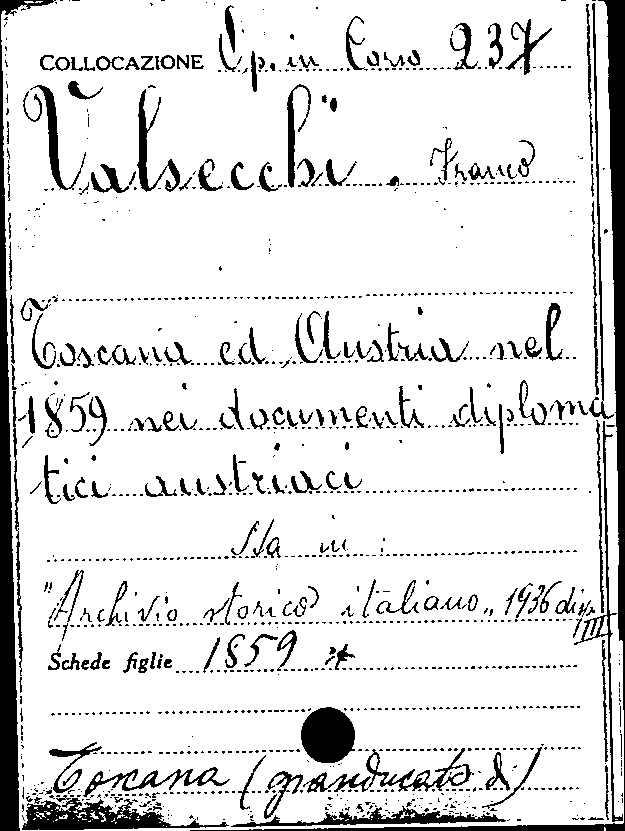 COLLOCAZIONE Op. in Corso 237
Valsecchi. Franco
Toscana ed Austria nel
1859 nei documenti diploma
tici austriaci
Sta in:
"Archivio storico italiano„ 1936 disp.
III
Schede figlie 1859 *
Toscana (granducato di)